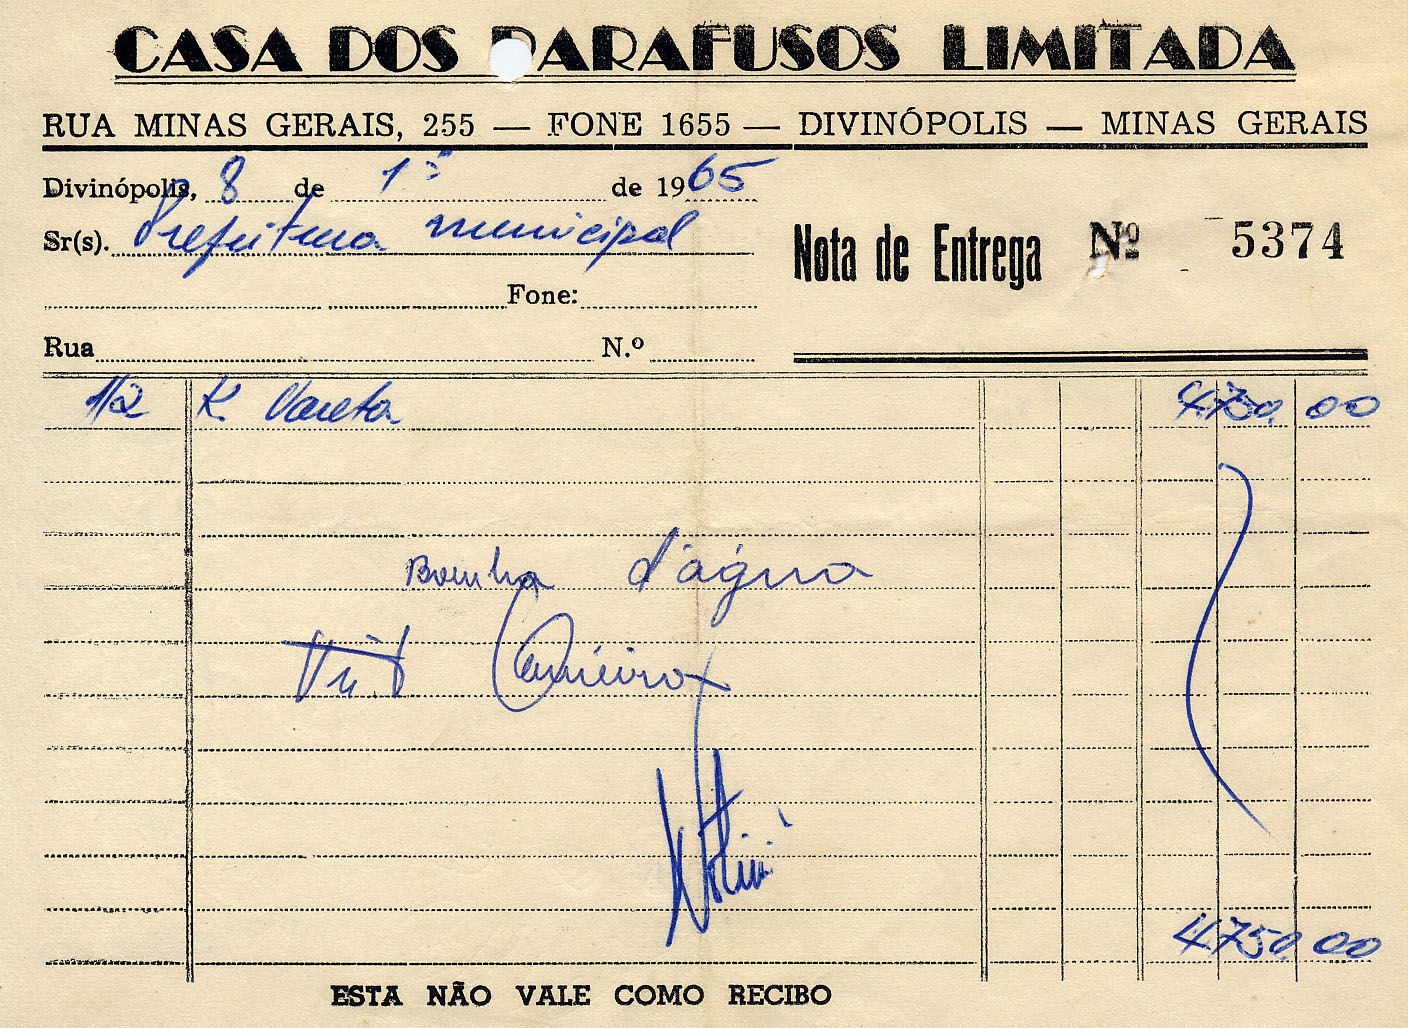 CASA DOS PARAFUSOS LIMITADA
RUA MINAS GERAIS, 255 — FONE 1655 — DIVINÓPOLIS — MINAS GERAIS
Divinópolis, 8 de 1º de 1965
Sr(s). Prefeitura municipal
Nota de Entrega Nº 5374
Fone:
Rua N.º
1/2 K. Vareta 4.750,00
Bomba d'água
Carneiro
4.750,00
ESTA NÃO VALE COMO RECIBO